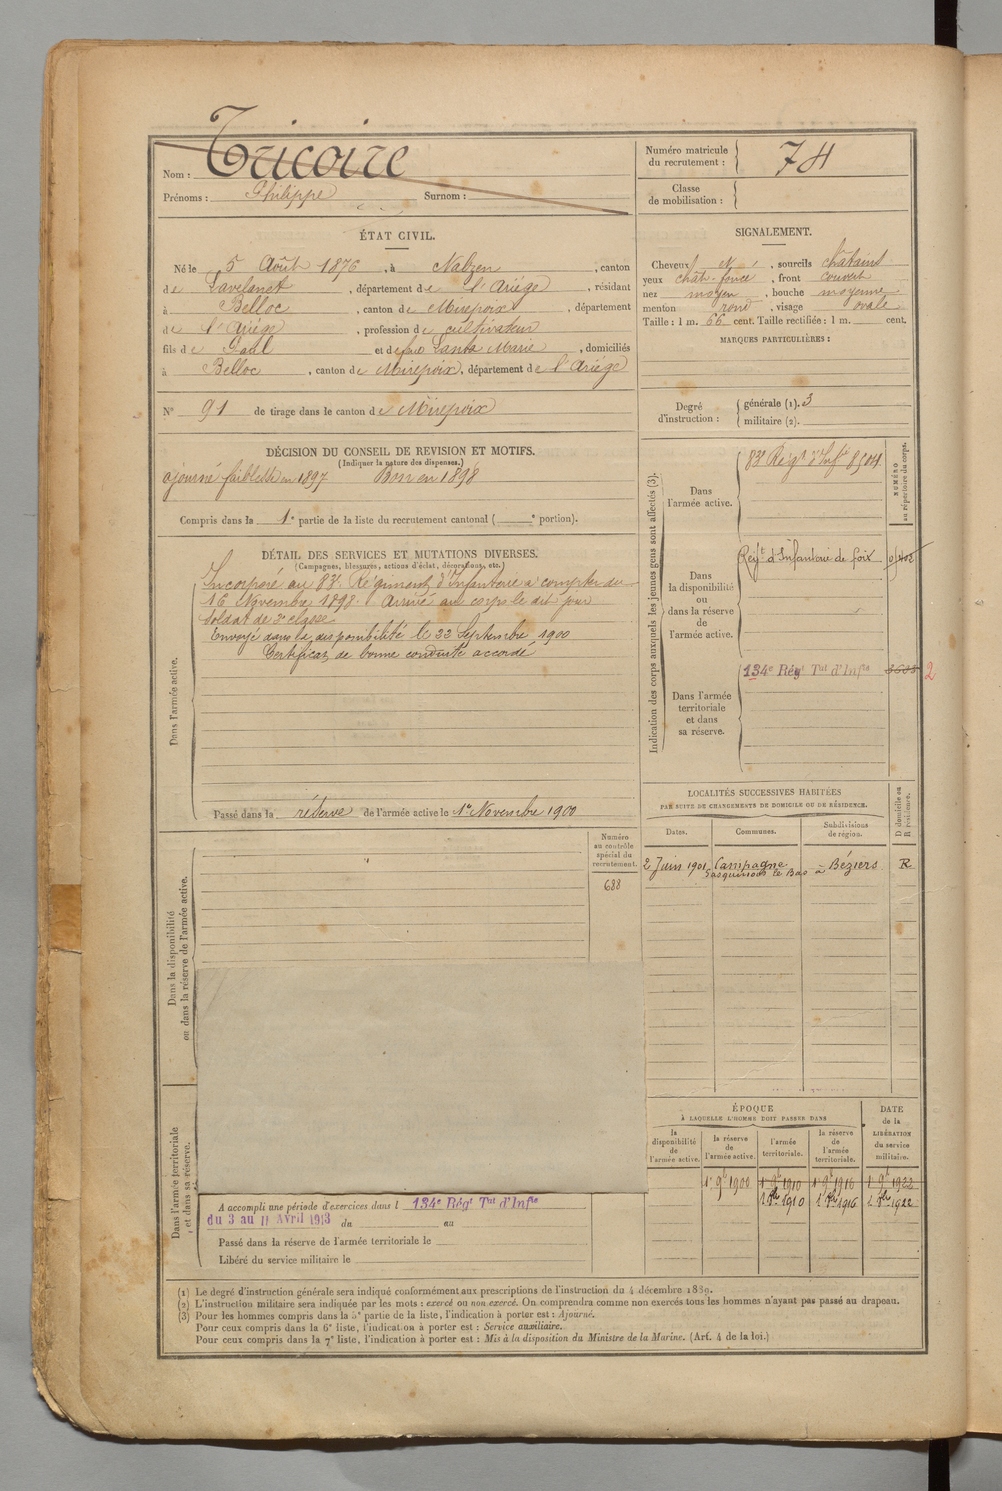 Nom : Tricoire
Prénoms : Philippe Surnom :
Numéro matricule
du recrutement : 74
Classe
de mobilisation :
ÉTAT CIVIL.
Né le 5 Août 1876, à Nalzen, canton
de Lavelanet, département de l'Ariège, résidant
à Belloc, canton de Mirepoix, département
de l'Ariège, profession de cultivateur
fils de Paul et de feue Santa Marie, domiciliés
à Belloc, canton de Mirepoix, département de l'Ariège
N° 91 de tirage dans le canton de Mirepoix
SIGNALEMENT.
Cheveux et, sourcils châtains
yeux chât. foncé, front couvert
nez moyen, bouche moyenne
menton rond, visage ovale
Taille : 1 m. 66 cent. Taille rectifiée : 1 m. cent.
MARQUES PARTICULIÈRES :
Degré
d'instruction :
générale (1). 3
militaire (2).
DÉCISION DU CONSEIL DE REVISION ET MOTIFS.
(Indiquer la nature des dispenses.)
ajourné faiblesse en 1897 Bon en 1898
Compris dans la 1e partie de la liste du recrutement cantonal ( e portion).
DÉTAIL DES SERVICES ET MUTATIONS DIVERSES.
(Campagnes, blessures, actions d'éclat, décorations, etc.)
Dans l'armée active.
Incorporé au 83e Régiment d'Infanterie à compter du
16 Novembre 1898. Arrivé au corps le dit jour
soldat de 2e classe
Envoyé dans la disponibilité le 22 Septembre 1900
Certificat de bonne conduite accordé
Passé dans la réserve de l'armée active le 1er Novembre 1900
Indication des corps auxquels les jeunes gens sont affectés (3).
NUMÉRO
au répertoire du corps.
Dans
l'armée active.
83e Régt d'Infie 8504
Dans
la disponibilité
ou
dans la réserve
de
l'armée active.
Régt d'Infanterie de foix
Dans l'armée
territoriale
et dans
sa réserve.
134e Régt Tal d'Infie 2
LOCALITÉS SUCCESSIVES HABITÉES
PAR SUITE DE CHANGEMENTS DE DOMICILE OU DE RÉSIDENCE.
D domicile ou
R résidence.
Dates. Communes. Subdivisions
de région.
2 Juin 1901 Campagne Béziers R
le Bas
Dans la disponibilité
ou dans la réserve de l'armée active.
Numéro
au contrôle
spécial du
recrutement.
688
ÉPOQUE
À LAQUELLE L'HOMME DOIT PASSER DANS
DATE
de la
LIBÉRATION
du service
militaire.
la
disponibilité
de
l'armée active.
la réserve
de
l'armée active.
l'armée
territoriale.
la réserve
de
l'armée
territoriale.
1er 9bre 1900 1er 9bre 1910 1er 9bre 1916 1er 9bre 1922
1910 1916 1922
Dans l'armée territoriale
et dans sa réserve.
A accompli une période d'exercices dans l 134e Régt Tal d'Infie
du 3 au 11 Avril 1913 du au
Passé dans la réserve de l'armée territoriale le
Libéré du service militaire le
(1) Le degré d'instruction générale sera indiqué conformément aux prescriptions de l'instruction du 4 décembre 1889.
(2) L'instruction militaire sera indiquée par les mots : exercé ou non exercé. On comprendra comme non exercés tous les hommes n'ayant pas passé au drapeau.
(3) Pour les hommes compris dans la 5e partie de la liste, l'indication à porter est : Ajourné.
Pour ceux compris dans la 6e liste, l'indication à porter est : Service auxiliaire.
Pour ceux compris dans la 7e liste, l'indication à porter est : Mis à la disposition du Ministre de la Marine. (Art. 4 de la loi.)